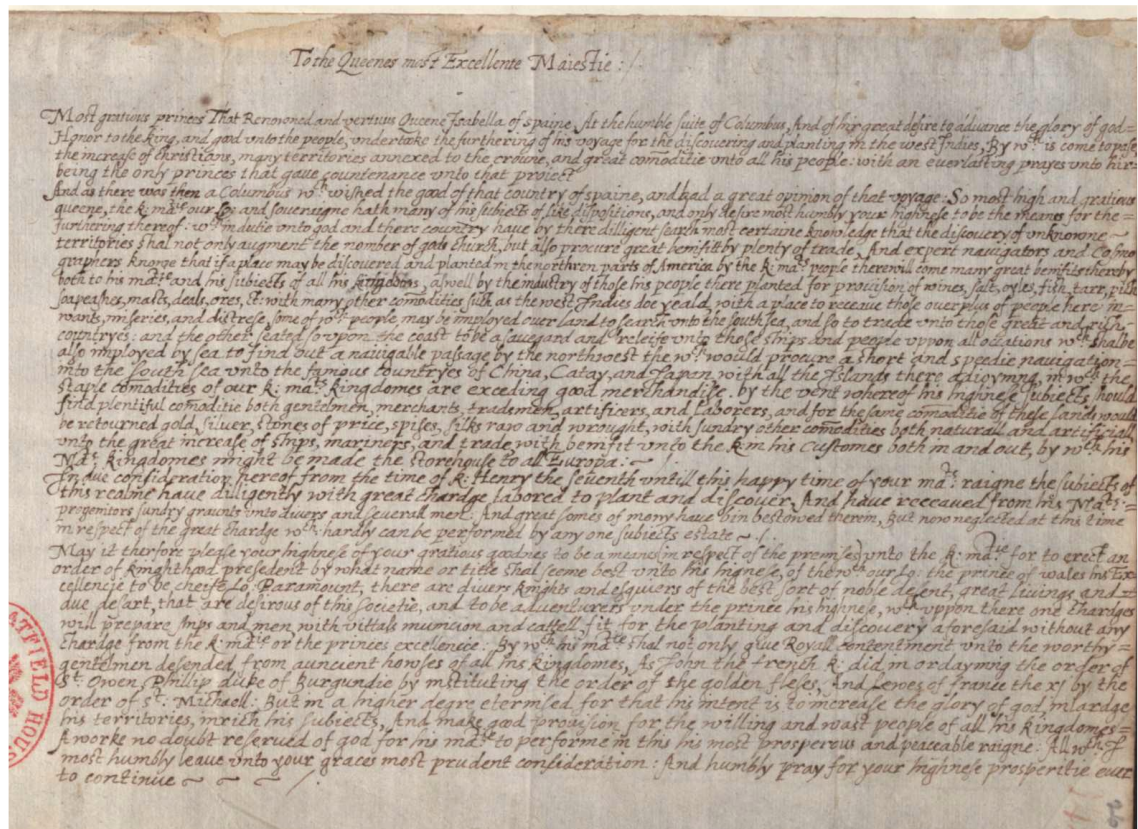 To the Queenes most Excellente Maiestie :/.
Most gratious princes That Renowned and vertius Queene Isabella of spaine, At the humble suite of Columbus, And of hir great desire to advance the glory of god =
Honor to the king, and good vnto the people, vndertake the furthering of his voyage for the discovering and planting in the west Indies, By wch. is come to passe
the increase of christians, many territories annexed to the crowne, and great comoditie vnto all his people: with an everlasting prayes vnto hir =
being the only princes that gave countenance vnto that proiect
And as there was then a Columbus wch. wished the good of that country of spaine, and had a great opinion of that voyage: So most high and gratious
queene, the k: matie our Lo: and soveraigne hath many of his subiects of like dispositions, and only desire most humbly your highnese to be the means for the =
furthering thereof: wch. in dutie vnto god and there country have by there dilligent search most certaine knowledge that the discovery of vnknowne =
territories shal not only augment the nomber of gods church, but also procure great benifitt by plenty of trade, And expert navigators and Cosmo
graphers knowe that if a place may be discovered and planted in the northren parts of America by the k: mats. people there will come many great benifits thereby
both to his matie and his subiects of all his kingdoms, aswell by the industry of those his people there planted for provision of wines, salt, oyles, fish, tarr, pitch
soapeashes, masts, deals, ores, &c: with many other comodities such as the west Indues doe yeald, with a place to receave those over plus of people here in =
wants, miseries, and distrese, some of wch. people, may be imployed over land to search vnto the south sea, and so to trade vnto those great and rich
countryes: and the other seated so vpon the coast to be a savegard and releife vnto those ships and people vppon all occations wch. shalbe
also imployed by sea to find out a navigable passage by the northwest the wch. would procure a short and speedie navigation =
into the south sea vnto the famous countryes of China, Catay, and Japan, with all the Islands there adioyning, in wch. the
staple comodities of our k: mats. kingdomes are exceding good merchandise. by the vent whereof his highnese subiects should
find plentiful comoditie both gentelmen, merchants, tradsmen, artificers, and laborers, and for the same comoditie of these lands would
be retourned gold, silver, stones of price, spises, silks raw and wrought, with sundry other comodities both naturall and artificiall,
vnto the great increase of ships, mariners, and trade, with benifit vnto the k: in his Customes both in and out, by wch. his
Mats. kingdomes might be made the storehouse to all Europa: ~
In due consideration hereof from the time of k: Henry the seventh vntill this happy time of your mats: raigne the subiects of
this realme have diligently with great chardge labored to plant and discover, And have receaved from his Mats: =
progenitors sundry graunts vnto divers and severall men: And great somes of mony have bin bestowed therein, But now neglected at this time
in respect of the great chardge wch. hardly can be performed by any one subiects estate ~ /.
May it therfore please your highnese of your gratious goodnes to be a means in respect of the premises) vnto the k: matie for to erect an
order of knighthood presedent by what name or title shal seeme best vnto his highnese, of the wch our Lo: the prince of wales his Ex
cellencie to be cheife Lo: Paramount, there are divers knights and esquiers of the best sort of noble desent, great livings and =
due desart, that are desirous of this societie, and to be adventurers vnder the prince his highnese, wch. vppon there one chardges
will prepare ships and men with vittals municion and cattell fit for the planting and discovery aforesaid without any
chardge from the k: matie or the princes excellencie: By wch. his matie shal not only give Royall contentment vnto the worthy =
gentelmen desended from auncient howses of all his kingdomes, As John the french k: did in ordayning the order of
St. Owen, Phillip duke of Burgundie by instituting the order of the golden flese, And Lewes of france the xj by the
order of St. Michaell: But in a higher degre for that his intent is to increase the glory of god, inlardge
his territories, inrich his subiects, And make good provision for the willing and wast people of all his kingdomes =
A worke no doubt reserved of god for his matie to performe in this his most prosperous and peaceable raigne: All wch I
most humbly leave vnto your graces most prudent consideration: And humbly pray for your highnese prosperitie ever
to continue ~ ~ ~ /.
ATFIELD HOUS